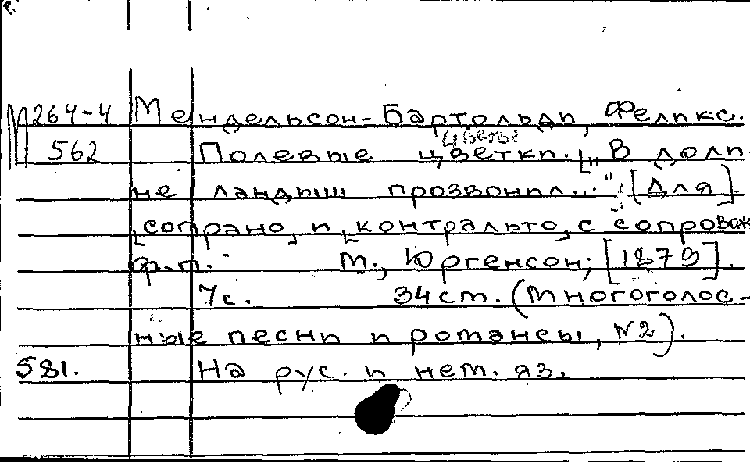 М 264-4 Мендельсон-Бартольди, Феликс.
562 Полевые цветки. [„В доли-
не ландыш прозвонил..." [Для]
[сопрано и контральто, с сопровож
ф.п. М., Юргенсон, [1879].
7с. 34 см. (Многоголос-
ные песни и романсы, №2).
581. На рус. и нем. яз.